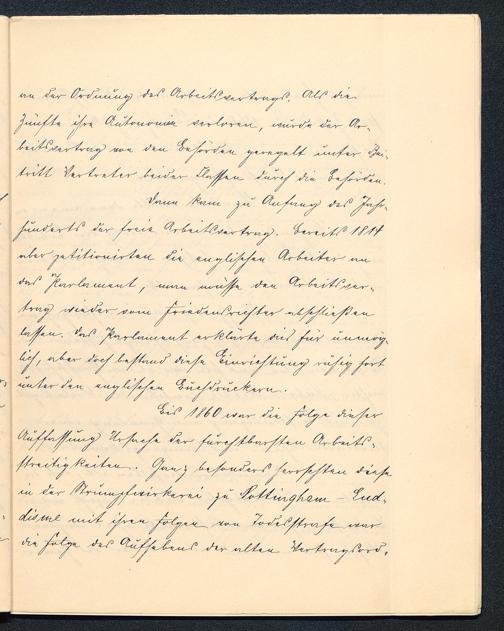 an der Ordnung des Arbeitsvertrags. Als die
Zünfte ihre Autonomie verloren, wurde der Ar-
beitsvertrag von den Behörden geregelt unter Zu-
tritt Vertreter beider Classen durch die Behörden.
Dann kam zu Anfang des Jahr-
hunderts der freie Arbeitsvertrag. Bereits 1814
aber petitionirten die englischen Arbeiter an
das Parlament, man müsse den Arbeitsver-
trag wieder vom Friedensrichter abschließen
lassen. Das Parlament erklärte dies für unmög-
lich, aber doch bestand diese Einrichtung ruhig fort
unter den englischen Buchdruckern.
Bis 1860 war die Folge dieser
Auffassung Ursache der furchtbarsten Arbeits-
streitigkeiten. Ganz besonders herrschten diese
in der Strumpfwirkerei zu Nottingham - Lud-
disme mit ihren Folgen von Todesstrafe war
die Folge des Aufhebens der alten Vertragsord-